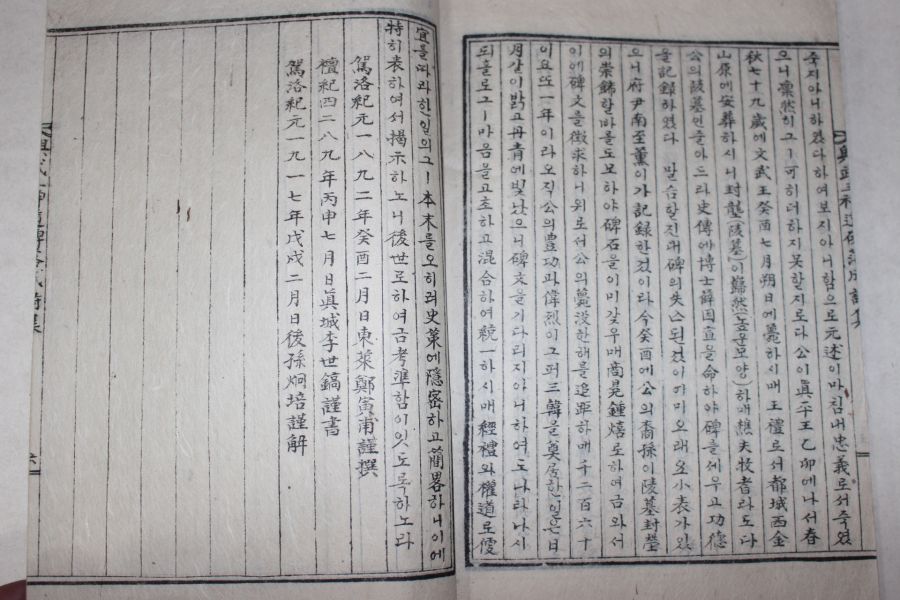 죽지아니하였다하여보지아니함으로元述이마침내忠義로서죽었
으니凜然히그ㅣ可히더하지못할지로다 公이眞平王乙卯에나서春
秋七十九歲에文武王癸酉七月朔日에薨하시매王禮로서都城西金
山原에安葬하시니封壟(陵墓)이巋然(높은모양)하매樵夫牧者라도다
公의陵墓인줄아드라史傳에博士薛因宣을命하야碑를세우고功德
을記錄하였다 말슴할진대碑의失亡된것이이미오래오小表가있
으니府尹南至薰이가記錄한것이라今癸酉에公의裔孫이陵墓封塋
의崇飾할바를도모하야碑石을이미갖우매 鍾熺로하여금와서
이에碑文을徵求하니위로서公의薨沒한해를追距하매千二百六十
이요또一年이라오직公의豊功과偉烈이그ㅣ퍼三韓을奠居한일은日
月같이밝고丹靑에빛났으니碑文을기다리지아니하여도나라나시
되홀로그ㅣ마음을고초하고混合하여統一하시매經禮와權道로
宜를따라한일의그ㅣ本末를오히려史策에隱密하고簡畧하니이에
特히表하여서揭示하노니後世로하여금考準함이잇도록하노라
駕洛紀元一八九二年癸酉二月日東萊鄭寅甫謹撰
檀紀四二八九年丙申七月日眞城李世鎬謹書
駕洛紀元一九一七年戊戌二月日後孫炯培謹解